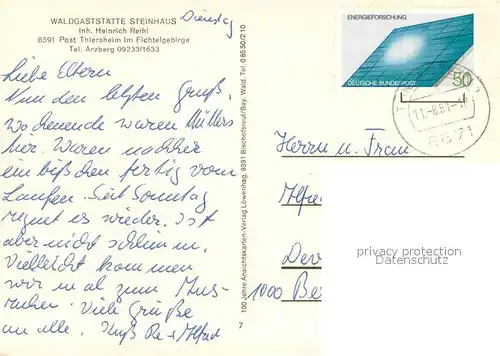 WALDGASTSTÄTTE STEINHAUS
Inh. Heinrich Reihl
8591 Post Thiersheim im Fichtelgebirge
Tel. Arzberg 09233/1633
Dienstag
Liebe Eltern
Nun den letzten Gruß.
Wochenende waren Müllers
hier. Waren nachher
ein bißchen fertig vom
Laufen. Seit Sonntag
regnet es wieder. Ist
aber nicht schlimm.
Vielleicht kommen
wir mal zum
Viele Grüße
an alle. Kuß
7
100 Jahre Ansichtskarten-Verlag Löwenhag, 8391 Bischofsreut/Bay. Wald, Tel. 08550/210
ENERGIEFORSCHUNG
DEUTSCHE BUNDESPOST
50
11.-8.81
8671
Herrn u. Frau
1000 Be
privacy protection
Datenschutz